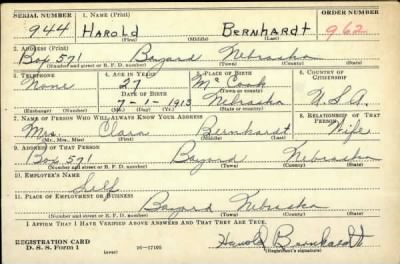 SERIAL NUMBER 1. NAME (Print) ORDER NUMBER
944 Harold Bernhardt 962
(First) (Middle) (Last)
2. ADDRESS (Print)
Box 571 Bayard Nebraska
(Number and street or R. F. D. number) (Town) (County) (State)
3. TELEPHONE 4. AGE IN YEARS 5. PLACE OF BIRTH 6. COUNTRY OF CITIZENSHIP
None 27 McCook
DATE OF BIRTH (Town or county)
7-1-1913 Nebraska U.S.A.
(Exchange) (Number) (Mo.) (Day) (Yr.) (State or country)
7. NAME OF PERSON WHO WILL ALWAYS KNOW YOUR ADDRESS 8. RELATIONSHIP OF THAT PERSON
Mrs. Clara Bernhardt Wife
(Mr., Mrs., Miss) (First) (Middle) (Last)
9. ADDRESS OF THAT PERSON
Box 571 Bayard Nebraska
(Number and street or R. F. D. number) (Town) (County) (State)
10. EMPLOYER'S NAME
Self
11. PLACE OF EMPLOYMENT OR BUSINESS
Bayard Nebraska
(Number and street or R. F. D. number) (Town) (County) (State)
I AFFIRM THAT I HAVE VERIFIED ABOVE ANSWERS AND THAT THEY ARE TRUE.
REGISTRATION CARD
D. S. S. Form 1 (over) 16-17105 Harold Bernhardt
(Registrant's signature)